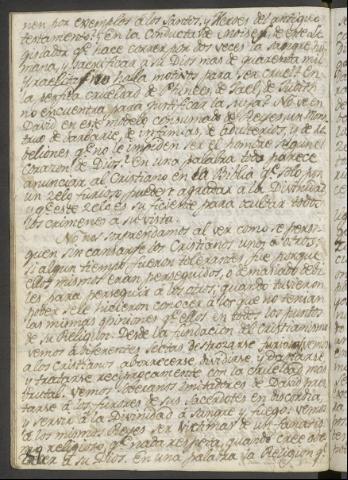 nen por exemplos a los Santos, y Heroes del antiguo
testamento? En la Conducta de Moises, de este Le-
gislador qe hace correr por dos veces la sangre hu-
mana, y sacrificar a su Dios mas de quarenta mil
Ysraelitas no halla motivos para ser cruel? En
la perfida crueldad de Phinees, de Jael, de Judith
no encuentra para justificar la suya? No ve en
David en este modelo consumado de Reyes un Mons-
truo de barbarie, de infamias, de adulterios, y de re-
beliones qe no le impiden ser el hombre segun el
Corazon de Dios? En una palabra todo parece
anunciar al Cristiano en la Biblia qe solo por
un zelo furioso puede agradar a la Divinidad
y qe este zelo es suficiente para ocultar todos
los crimenes a su vista.
No nos sorprendamos al ver como se persi-
guen sin cansarse los Cristianos unos a otros;
si algun tiempo fueron tolerantes fue porque
ellos mismos eran perseguidos, o demasiado debi-
les para perseguir a los otros; quando tuvieron
poder se le hicieron conocer a los que no tenian
las mismas opiniones qe ellos en todos los puntos
de su Religion. Desde la fundacion del Cristianismo
vemos a diferentes sectas
a los Cristianos aborrecerse, dividirse, y dañarse
y tratarse reciprocamente con la crueldad mas
brutal. Vemos Soberanos imitadores de David pres-
tarse a los furores de sus Sacerdotes en discordia,
y servir a la Divinidad a sangre y fuego: vemos
a los mismos Reyes ser Victimas de un fanatis-
mo religioso qe nada respeta, quando cree obe-
decer a su Dios. En una palabra la Religion qe